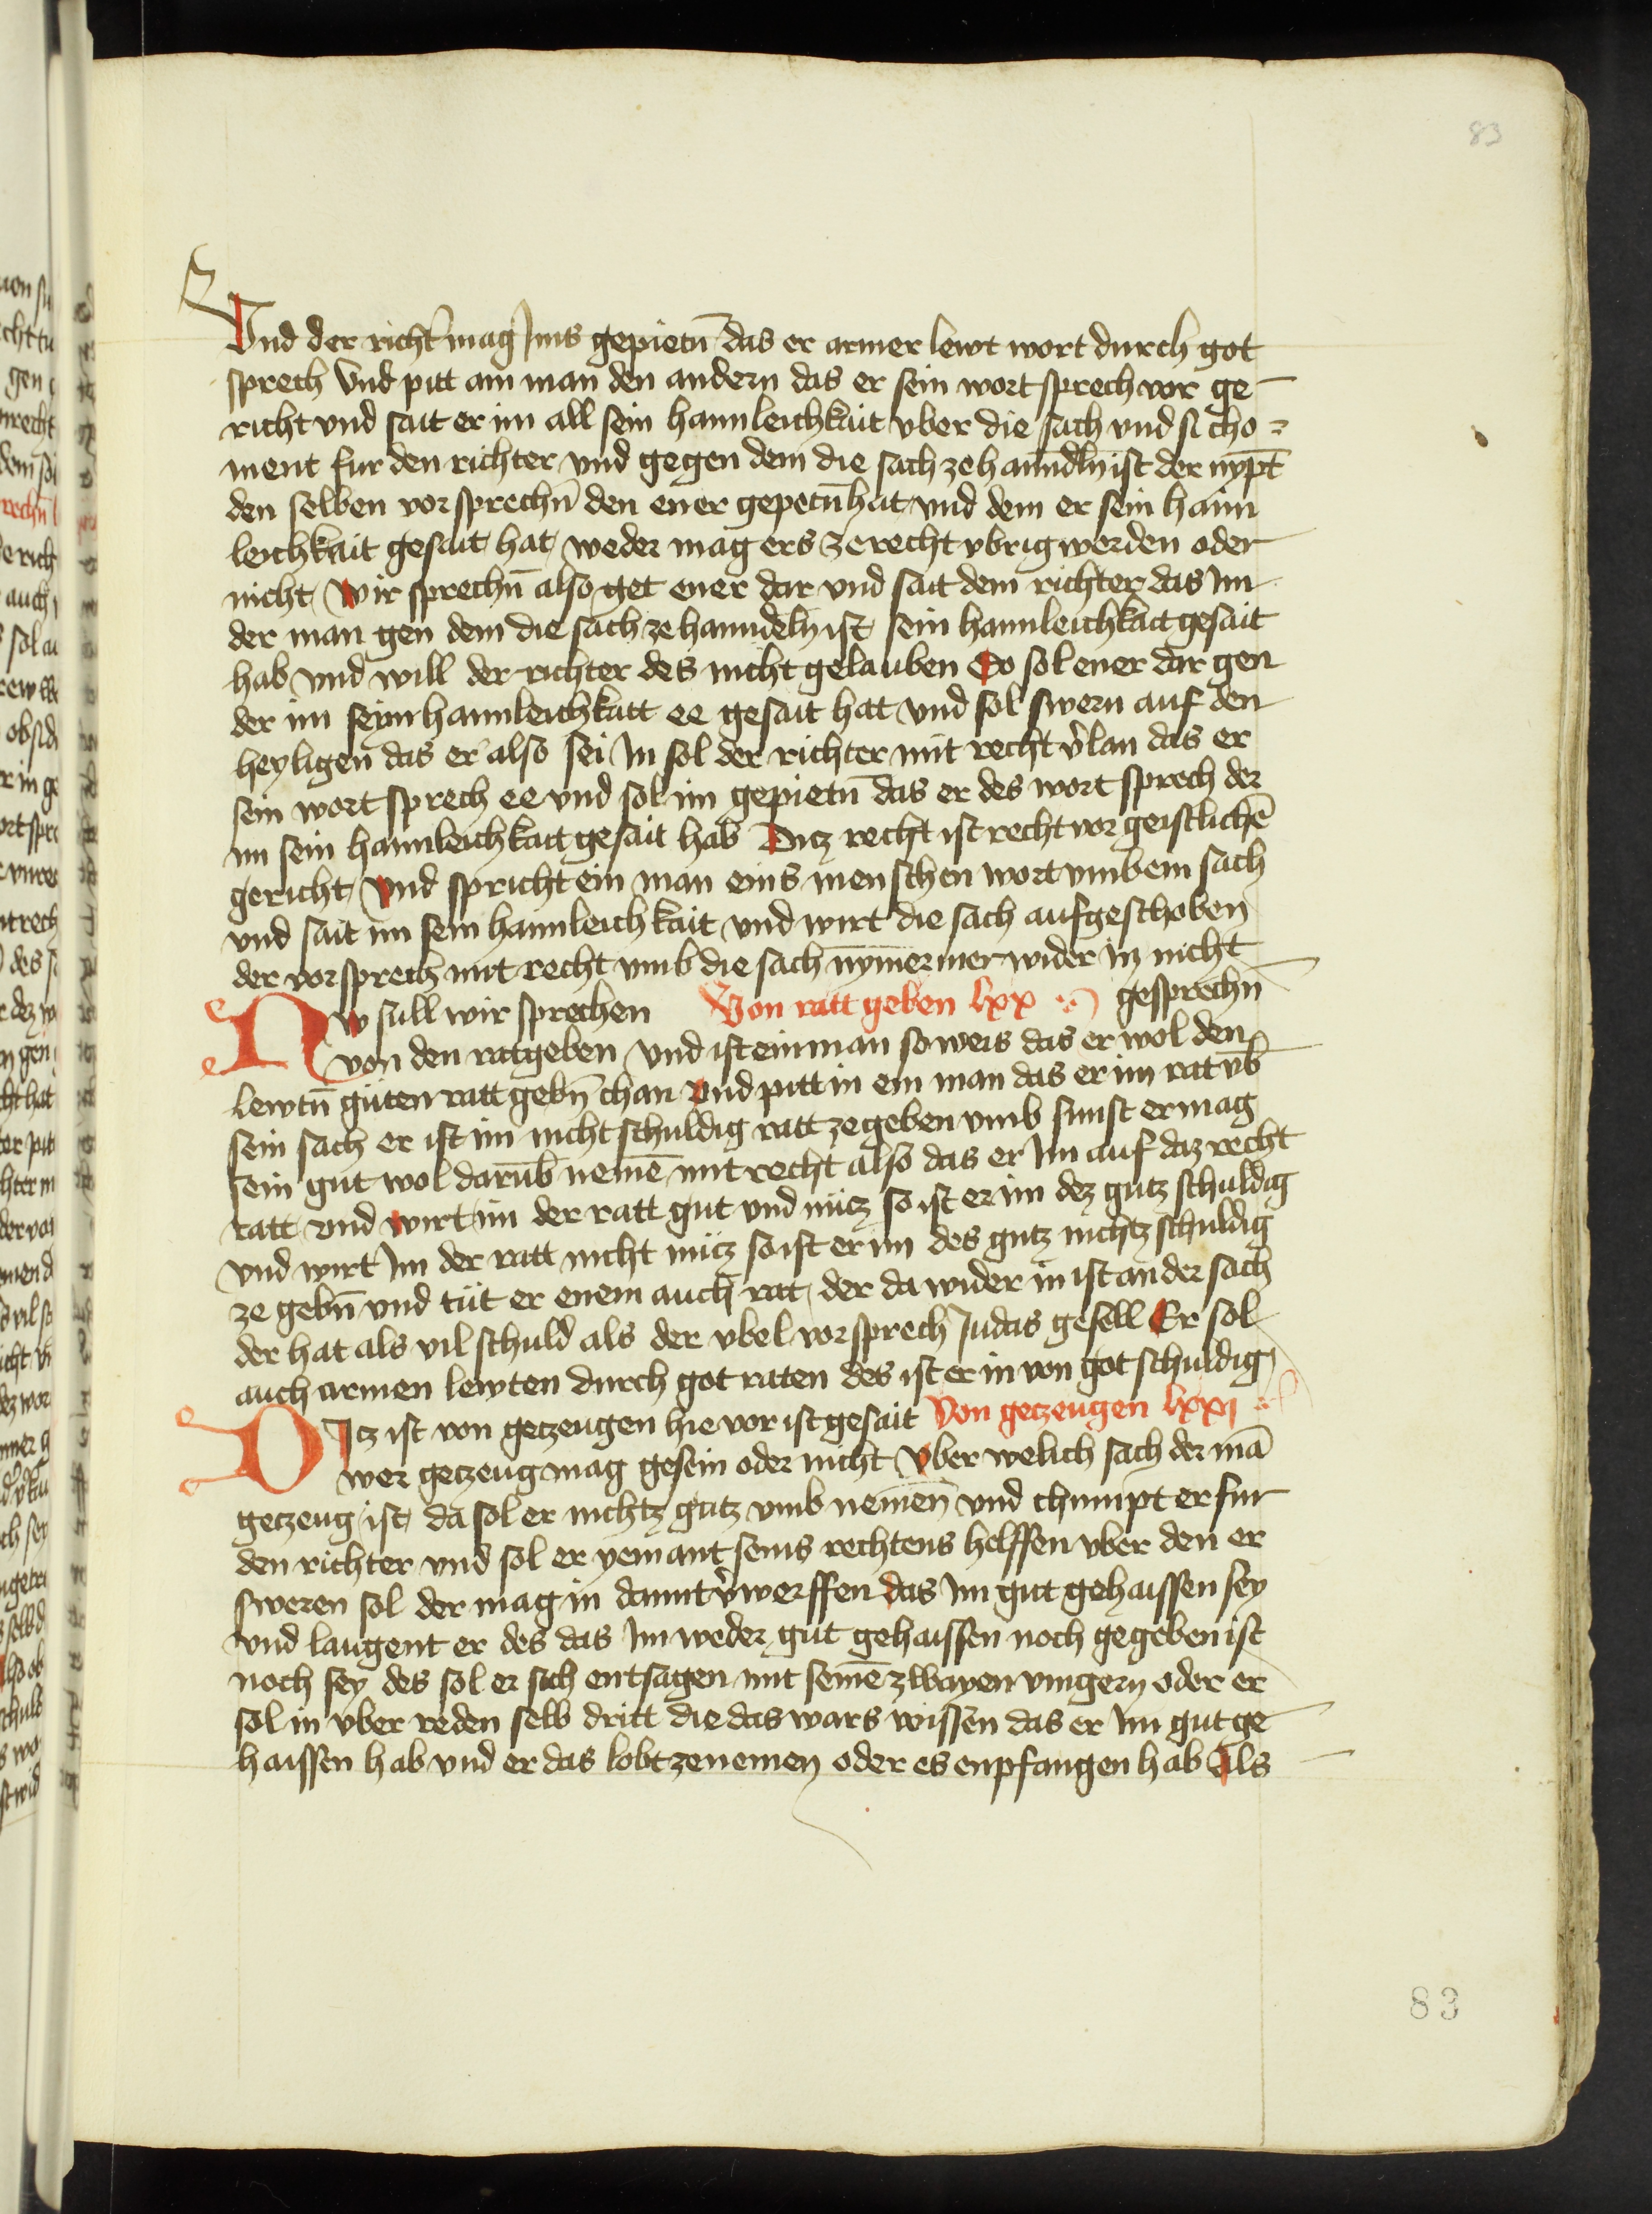 83
Vnd der richt̄ mag Jms gepietn̄ das er armer lewt wort durch got
sprech Vnd pitt ain man den andern das er sein wort sprech vor ge-
richt vnd sait er im all sein haimleichkait vber die sach vnd si cho=
ment fur den richter vnd gegen dem die sach ze hanndln̄ ist der nypt̄
den selben vorsprechn̄ den ener gepetn̄ hat vnd dem er sein haim
leichkait gesait hat weder mag ers ze recht vbrig werden oder
nicht Wir sprechn̄ also get ener dar vnd sait dem richter das Jm
der man gen dem die sach ze hanndeln ist sein haimleichkait gesait
hab vnd will der richter des nicht gelauben So sol ener dar gen
der im seym haimleichkait ee gesait hat vnd sol swern auf den
heyligen das er also sei Jn sol der richter mit recht v̄lan das er
sein wort sprech ee vnd sol im gepietn̄ das er des wort sprech der
im sein haimleichkait gesait hab Ditz recht ist recht vor geistlichē
gericht Vnd spricht ein man eins menschen wort vmb ein sach
vnd sait im sein haimleichkait vnd wirt die sach aufgeschoben
der vorsprech mit recht vmb die sach nȳmermer wider in nicht
Nw sull wir sprechen Von ratt geben lxx gesprechn̄
von den ratgeben Vnd ist ein man so weis das er wol den
lewtn̄ guten ratt gebn̄ chan Vnd pitt in ein man das er im rat vb̄
sein sach er ist im nicht schuldig ratt ze geben vmb sunst er mag
sein gut wol darūb nemē mit recht also das er Jm auf daz recht
ratt vnd wirt im der ratt gut vnd nütz so ist er im dez gutz schuldig
vnd wirt Jm der ratt nicht nütz so ist er im des gutz nichtz schuldig
ze gebn̄ vnd tüt er enem auch rat der da wider in ist an der sach
der hat als vil schuld als der vbel vorsprech Judas gesell Er sol
auch armen lewten durch got raten des ist er in von got schuldig
DItz ist von getzeugen hie vor ist gesait Von getzeugen lxxj
wer getzeug mag gesein oder nicht Vber welich sach der mā
getzeug ist da sol er nichtz gutz vmb nemen̄ vnd chumpt er fur
den richter vnd sol er yemant seins rechtens helffen vber den er
sweren sol der mag in damit v̄werffen das Jm gut gehaissen sey
vnd laugent er des das Jm weder gut gehaissen noch gegeben ist
noch sey des sol er sich entsagen mit seinē zwayen vingern oder er
sol in vber reden selb dritt die das wars wissen das er Jm gut ge
haissen hab vnd er das lobt ze nemen oder es enpfangen hab Als
83